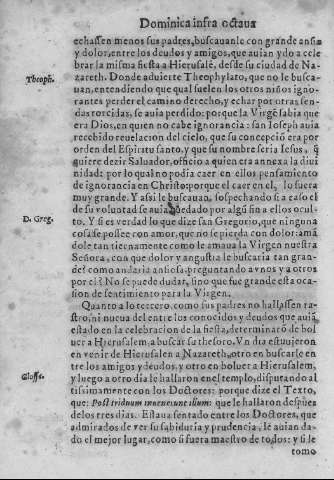 Dominica infra octaua
echassen menos sus padres, buscauanle con grande ansia
y dolor, entre los deudos y amigos, que auian ydo a cele
brar la misma fiesta a Hierusalẽ, desde su ciudad de Na-
zareth. Donde aduierte Theophylato, que no le busca-
uan, entendiendo que qual suelen los otros niños igno-
rantes perder el camino derecho, y echar por otras sen-
das torcidas, se auia perdido: porque la Virgẽ sabia que
era Dios, en quien no cabe ignorancia: san Ioseph auia
recebido reuelacion del cielo, que su concepciõ era por
orden del Espiritu santo, y que su nombre seria Iesus, q̃
quiere dezir Saluador, officio a quien era annexa la diui
nidad: por lo qual no podia caer en ellos pensamiento
de ignorancia en Christo: porque el caer en el, lo fuera
muy grande. Y assi le buscauan, sospechando si a caso el
de su voluntad se auia quedado por algũ fin a ellos ocul
to. Y si es verdad lo que dize san Gregorio, que ninguna
cosa se possee con amor, que no se pierda con dolor: amã
dole tan tiernamente como le amaua la Virgen nuestra
Señora, con que dolor y angustia le buscaria tan gran-
de? como andaria ansiosa, preguntando a vnos y a otros
por el? No se puede dudar, sino que fue grande esta oca
sion de sentimiento para la Virgen.
Quanto a lo tercero, como sus padres no hallassen ra-
stro, ni nueua del entre los conocidos y deudos que auiã
estado en la celebracion de la fiesta, determinarõ de bol
uer a Hierusalem, a buscar su thesoro. Vn dia estuuieron
en venir de Hierusalen a Nazareth, otro en buscarle en
tre los amigos y deudos, y otro en boluer a Hierusalem,
y luego a otro dia le hallaron en el templo, disputando al
tissimamente con los Doctores: porque dize el Texto,
que: Post triduum inuenerunt illum: que le hallaron despues
de los tres dias. Estaua sentado entre los Doctores, que
admirados de ver su sabiduria y prudencia, le auian da-
do el mejor lugar, como si fuera maestro de todos: y si le
tomo
Theoph.
D. Greg.
Gloss.